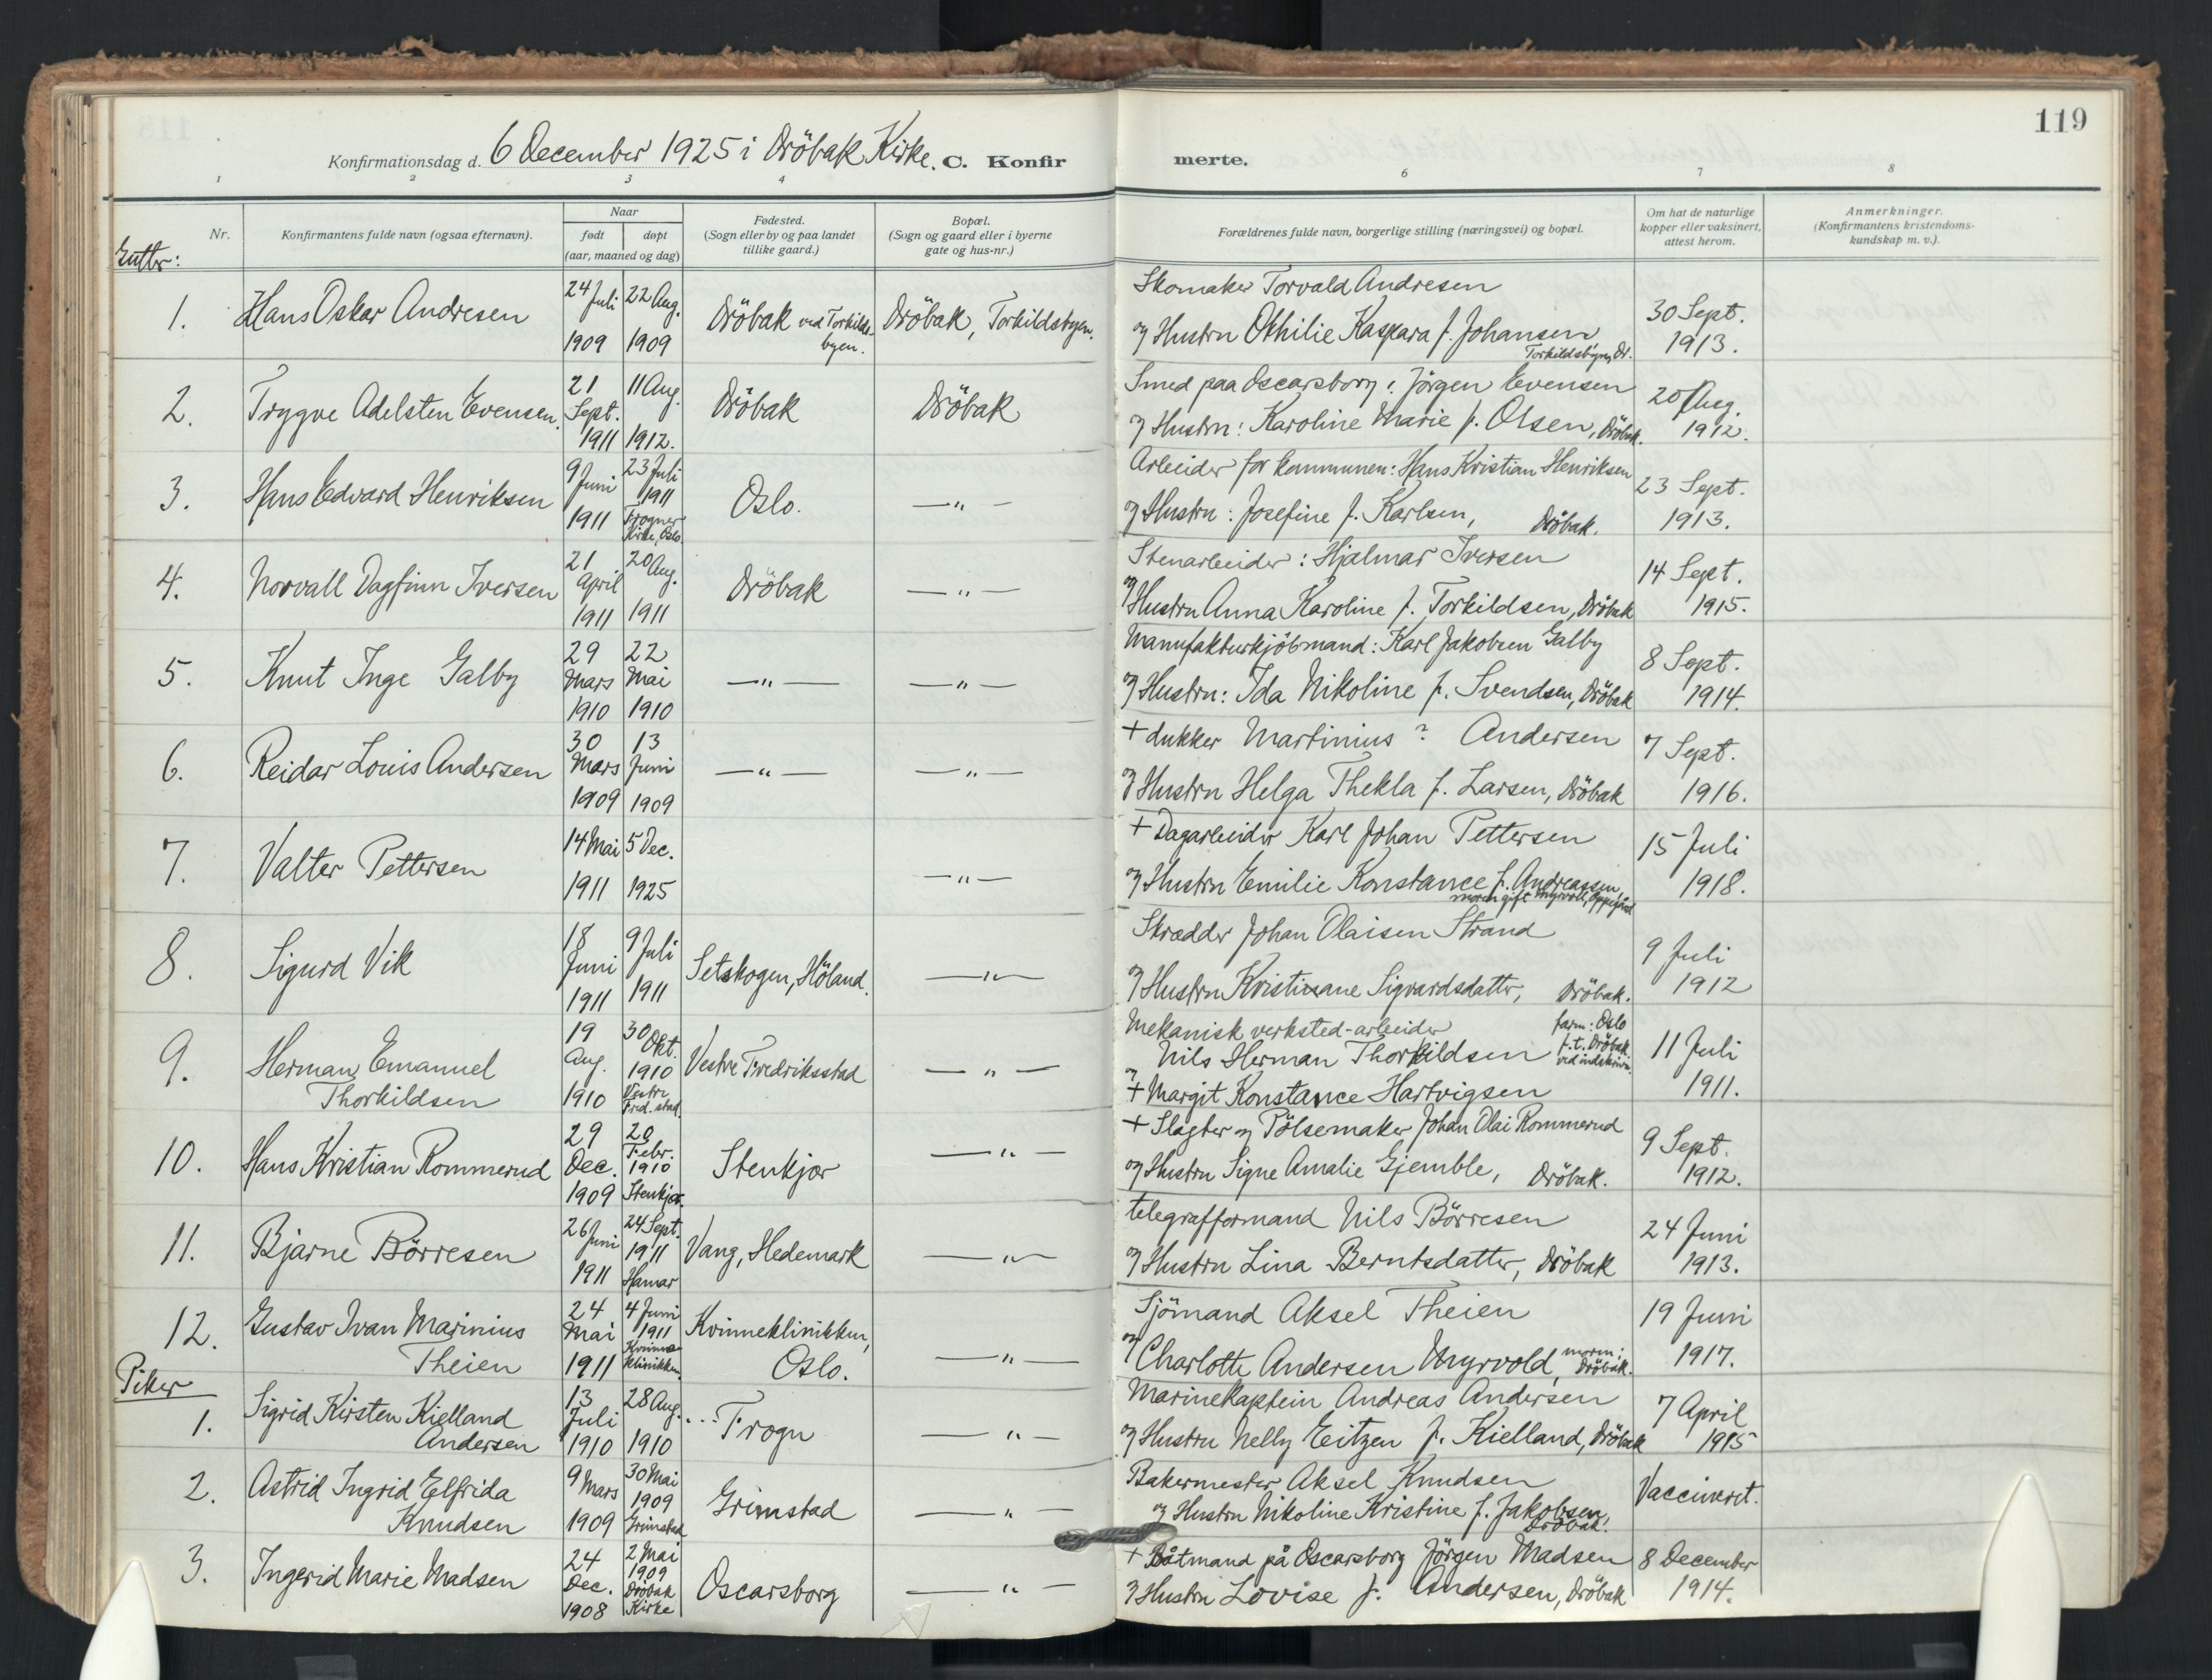 119
Konfirmationsdag d. 6 December 1925 i Dröbak Kirke. C. Konfir merte.
1 2 3 4 6 7 8
Nr. Konfirmantens fulde navn (ogsaa efternavn). Naar født døpt (aar, maaned og dag) Fødested. (Sogn eller by og paa landet tillike gaard.) Bopæl. (Sogn og gaard eller i byerne gate og hus-nr.) Forældrenes fulde navn, borgerlige stilling (næringsvei) og bopæl. Om hat de naturlige kopper eller vaksinert, attest herom. Anmerkninger. (Konfirmantens kristendoms-kundskap m. v.).
Gutter:
1. Hans Oskar Andresen 24 Juli 1909 22 Aug. 1909 Dröbak ved Torkilds-byen. Dröbak, Torkildsbyen. Skomaker Torvald Andresen
og Hustru Othilie Kaspara f. Johansen Torkildsbyen, Dr. 30 Sept. 1913.
2. Tryggve Adelsten Evensen. 21 Sept. 1911 11 Aug. 1912. Dröbak Dröbak Smed paa Oscarsborg: Jörgen Evensen
og Hustru: Karoline Marie f. Olsen, Dröbak. 20 Aug. 1912.
3. Hans Edvard Henriksen 9 Juni 1911 23 Juli 1911 Frogner Kirke, Oslo Oslo. —"— Arbeider for kommunen: Hans Kristian Henriksen
og Hustru: Josefine f. Karlsen, Dröbak. 23 Sept. 1913.
4. Norvall Dagfinn Iversen 21 April 1911 20 Aug. 1911 Dröbak —"— Stenarbeider: Hjalmar Iversen
og Hustru Anna Karoline f. Torkildsen, Dröbak 14 Sept. 1915.
5. Knut Inge Galby 29 Mars 1910 22 Mai 1910 —"— —"— Manufakturkjöbmand: Karl Jakobsen Galby
og Hustru: Ida Nikoline f. Svendsen, Dröbak 8 Sept. 1914.
6. Reidar Louis Andersen 30 Mars 1909 13 Juni 1909 —"— —"— + dukker Martinius ? Andersen
og Hustru Helga Thekla f. Larsen, Dröbak 7 Sept. 1916.
7. Valter Pettersen 14 Mai 1911 5 Dec. 1925 —"— + Dagarbeider Karl Johan Pettersen
og Hustru Emilie Konstance f. Andreassen, moren gift Myrvold, Oppegård 15 Juli 1918.
8. Sigurd Vik 18 Juni 1911 9 Juli 1911 Setskogen, Höland. —"— Skrædder Johan Olaisen Strand
og Hustru Kristinane Sigvardsdatter, Dröbak. 9 Juli 1912
9. Herman Emanuel Thorkildsen 19 Aug. 1910 30 Okt. 1910 Vestre Fred.stad. Vestre Fredriksstad —"— Mekanisk verksted-arbeider
Nils Herman Thorkildsen farm: Oslo f.t. Dröbak ved indskrivn.
og + Margit Konstance Hartvigsen 11 Juli 1911.
10. Hans Kristian Rommerud 29 Dec. 1909 20 Febr. 1910 Stenkjær. Stenkjær —"— + Slagter og Pölsemaker Johan Olai Rommerud
og Hustru Signe Amalie Gjemble, Dröbak. 9 Sept. 1912.
11. Bjarne Börresen 26 Juni 1911 24 Sept. 1911 Hamar Vang, Hedemark —"— telegrafformand Nils Börresen
og Hustru Lina Berntsdatter, Dröbak 24 Juni 1913.
12. Gustav Ivan Marinius Theien 24 Mai 1911 4 Juni 1911 Kvinneklinikken. Kvinneklinikken, Oslo. —"— Sjömand Aksel Theien
og Charlotte Andersen Myrvold, morm: Dröbak. 19 Juni 1917.
Piker
1. Sigrid Kirsten Kielland Andersen 13 Juli 1910 28 Aug. 1910 ... Frogn —"— Marinekaptein Andreas Andersen
og Hustru Nelly Eitzen f. Kielland, Dröbak 7 April 1915
2. Astrid Ingrid Elfrida Knudsen 9 Mars 1909 30 Mai 1909 Grimstad Grimstad —"— Bakermester Aksel Knudsen
og Hustru Nikoline Kristine f. Jakobsen, Dröbak. Vaccineret.
3. Ingerid Marie Madsen 24 Dec. 1908 2 Mai 1909 Dröbak Kirke Oscarsborg —"— + Båtmand på Oscarsborg Jörgen Madsen
og Hustru Lovise f. Andersen, Dröbak 8 December 1914.